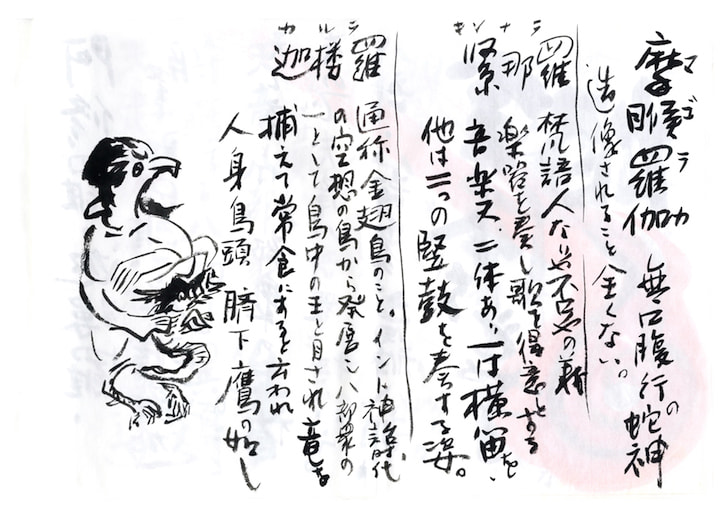 摩睺羅伽 無足腹行の蛇神
マゴラカ
造像されること全くない。
緊那羅 梵語人なりや不安の新
キンナラ
楽器を奏し歌を得意とする
音楽天、二体あり、一は横笛を、
他は二つの竪鼓を奏する姿。
迦楼羅 通称金翅鳥のこと。インド神話時代
カルラ
の空想の鳥から発層し八部衆の
一として鳥中の王と目され竜を
捕えて常食にすると云われ
人身鳥頭 臍下鷹の如し